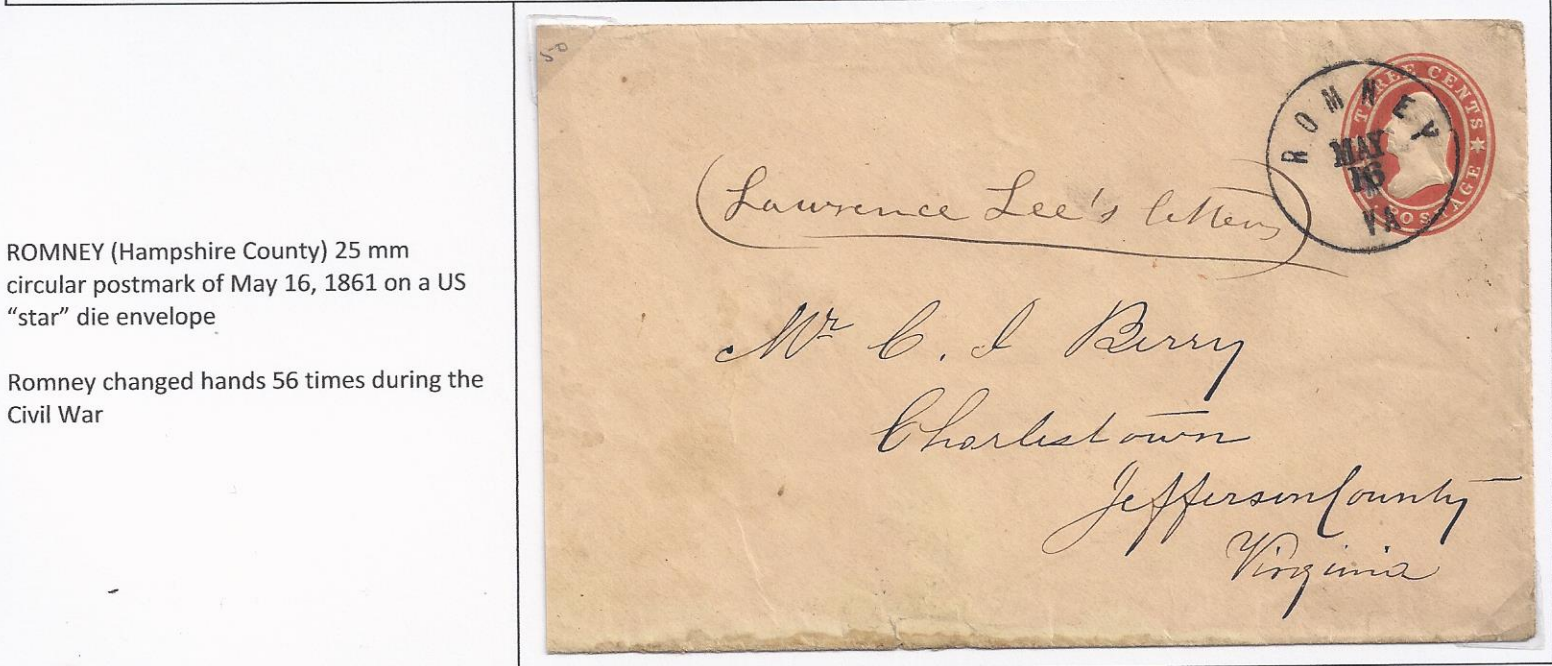 ROMNEY (Hampshire County) 25 mm
circular postmark of May 16, 1861 on a US
“star” die envelope
Romney changed hands 56 times during the
Civil War
THREE CENTS
POSTAGE
ROMNEY
MAY
16
VA
(Lawrence Lee's letters)
Mr C. I Berry
Charlestown
Jefferson County
Virginia